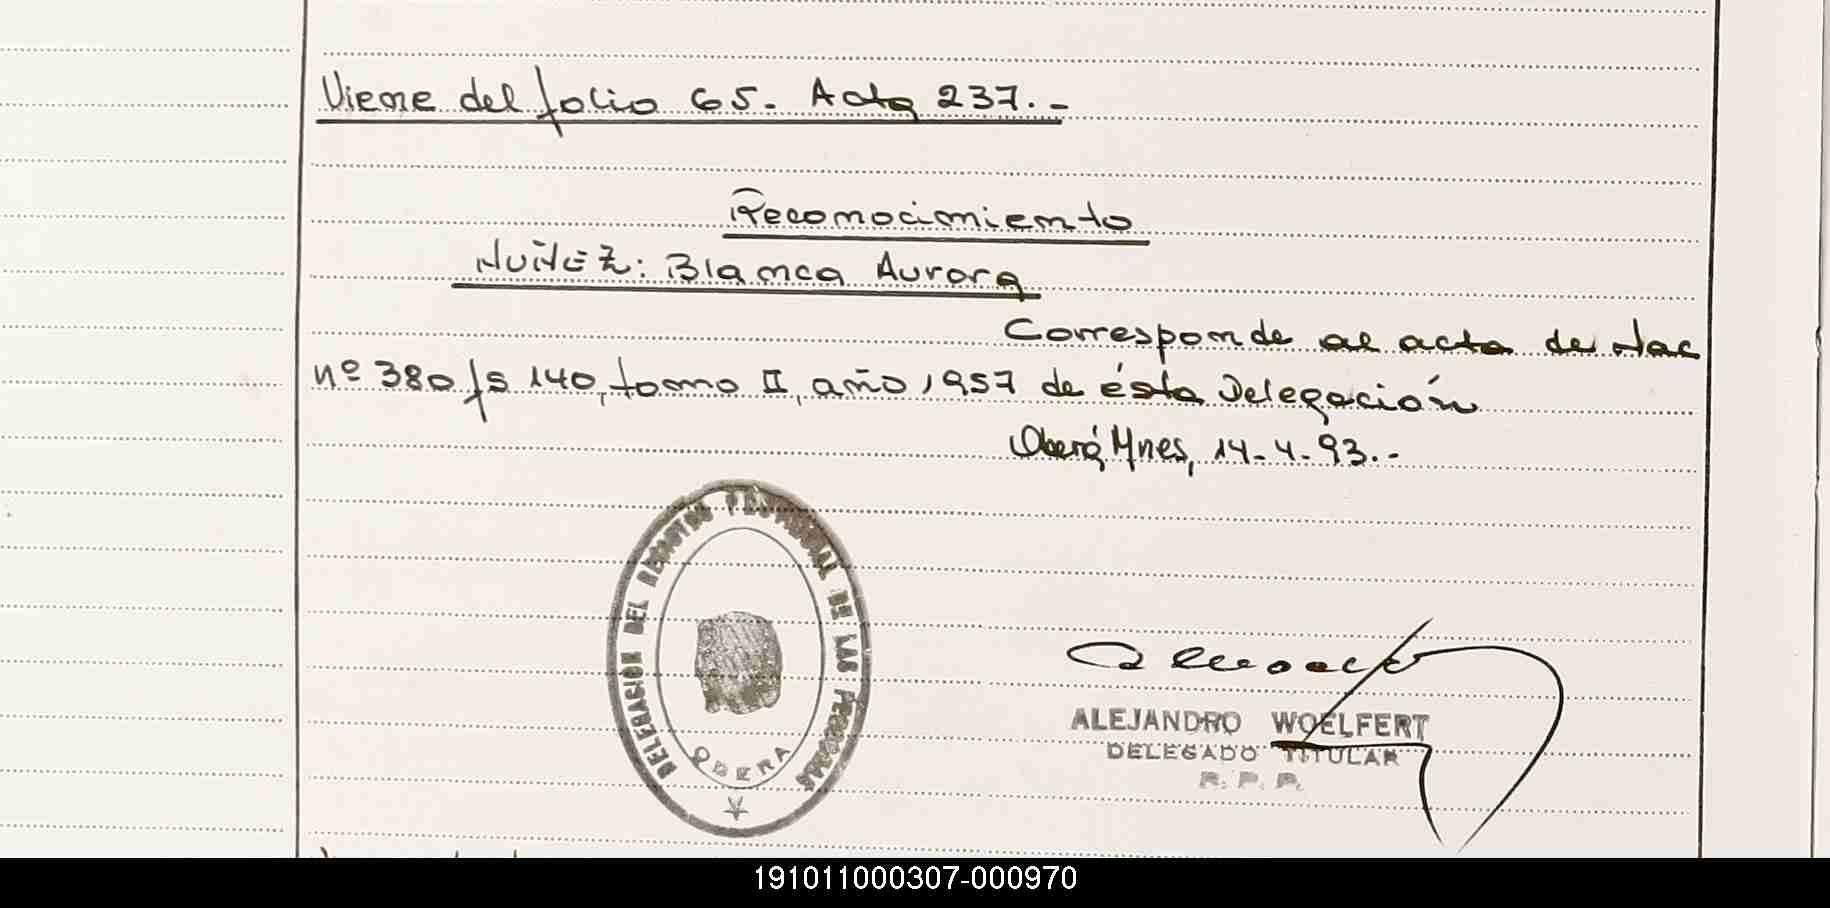 Viene del folio 65. Acta 237.-
Reconocimiento
NUÑEZ: Blanca Aurora
Corresponde al acta de Nac
nº 380 fs 140, tomo II, año 1957 de ésta Delegación
Oberá Mnes, 14-4-93.-
DELEGACION DEL REGISTRO PROVINCIAL DE LAS PERSONAS
OBERA
ALEJANDRO WOELFERT
DELEGADO TITULAR
R. P. P.
191011000307-000970